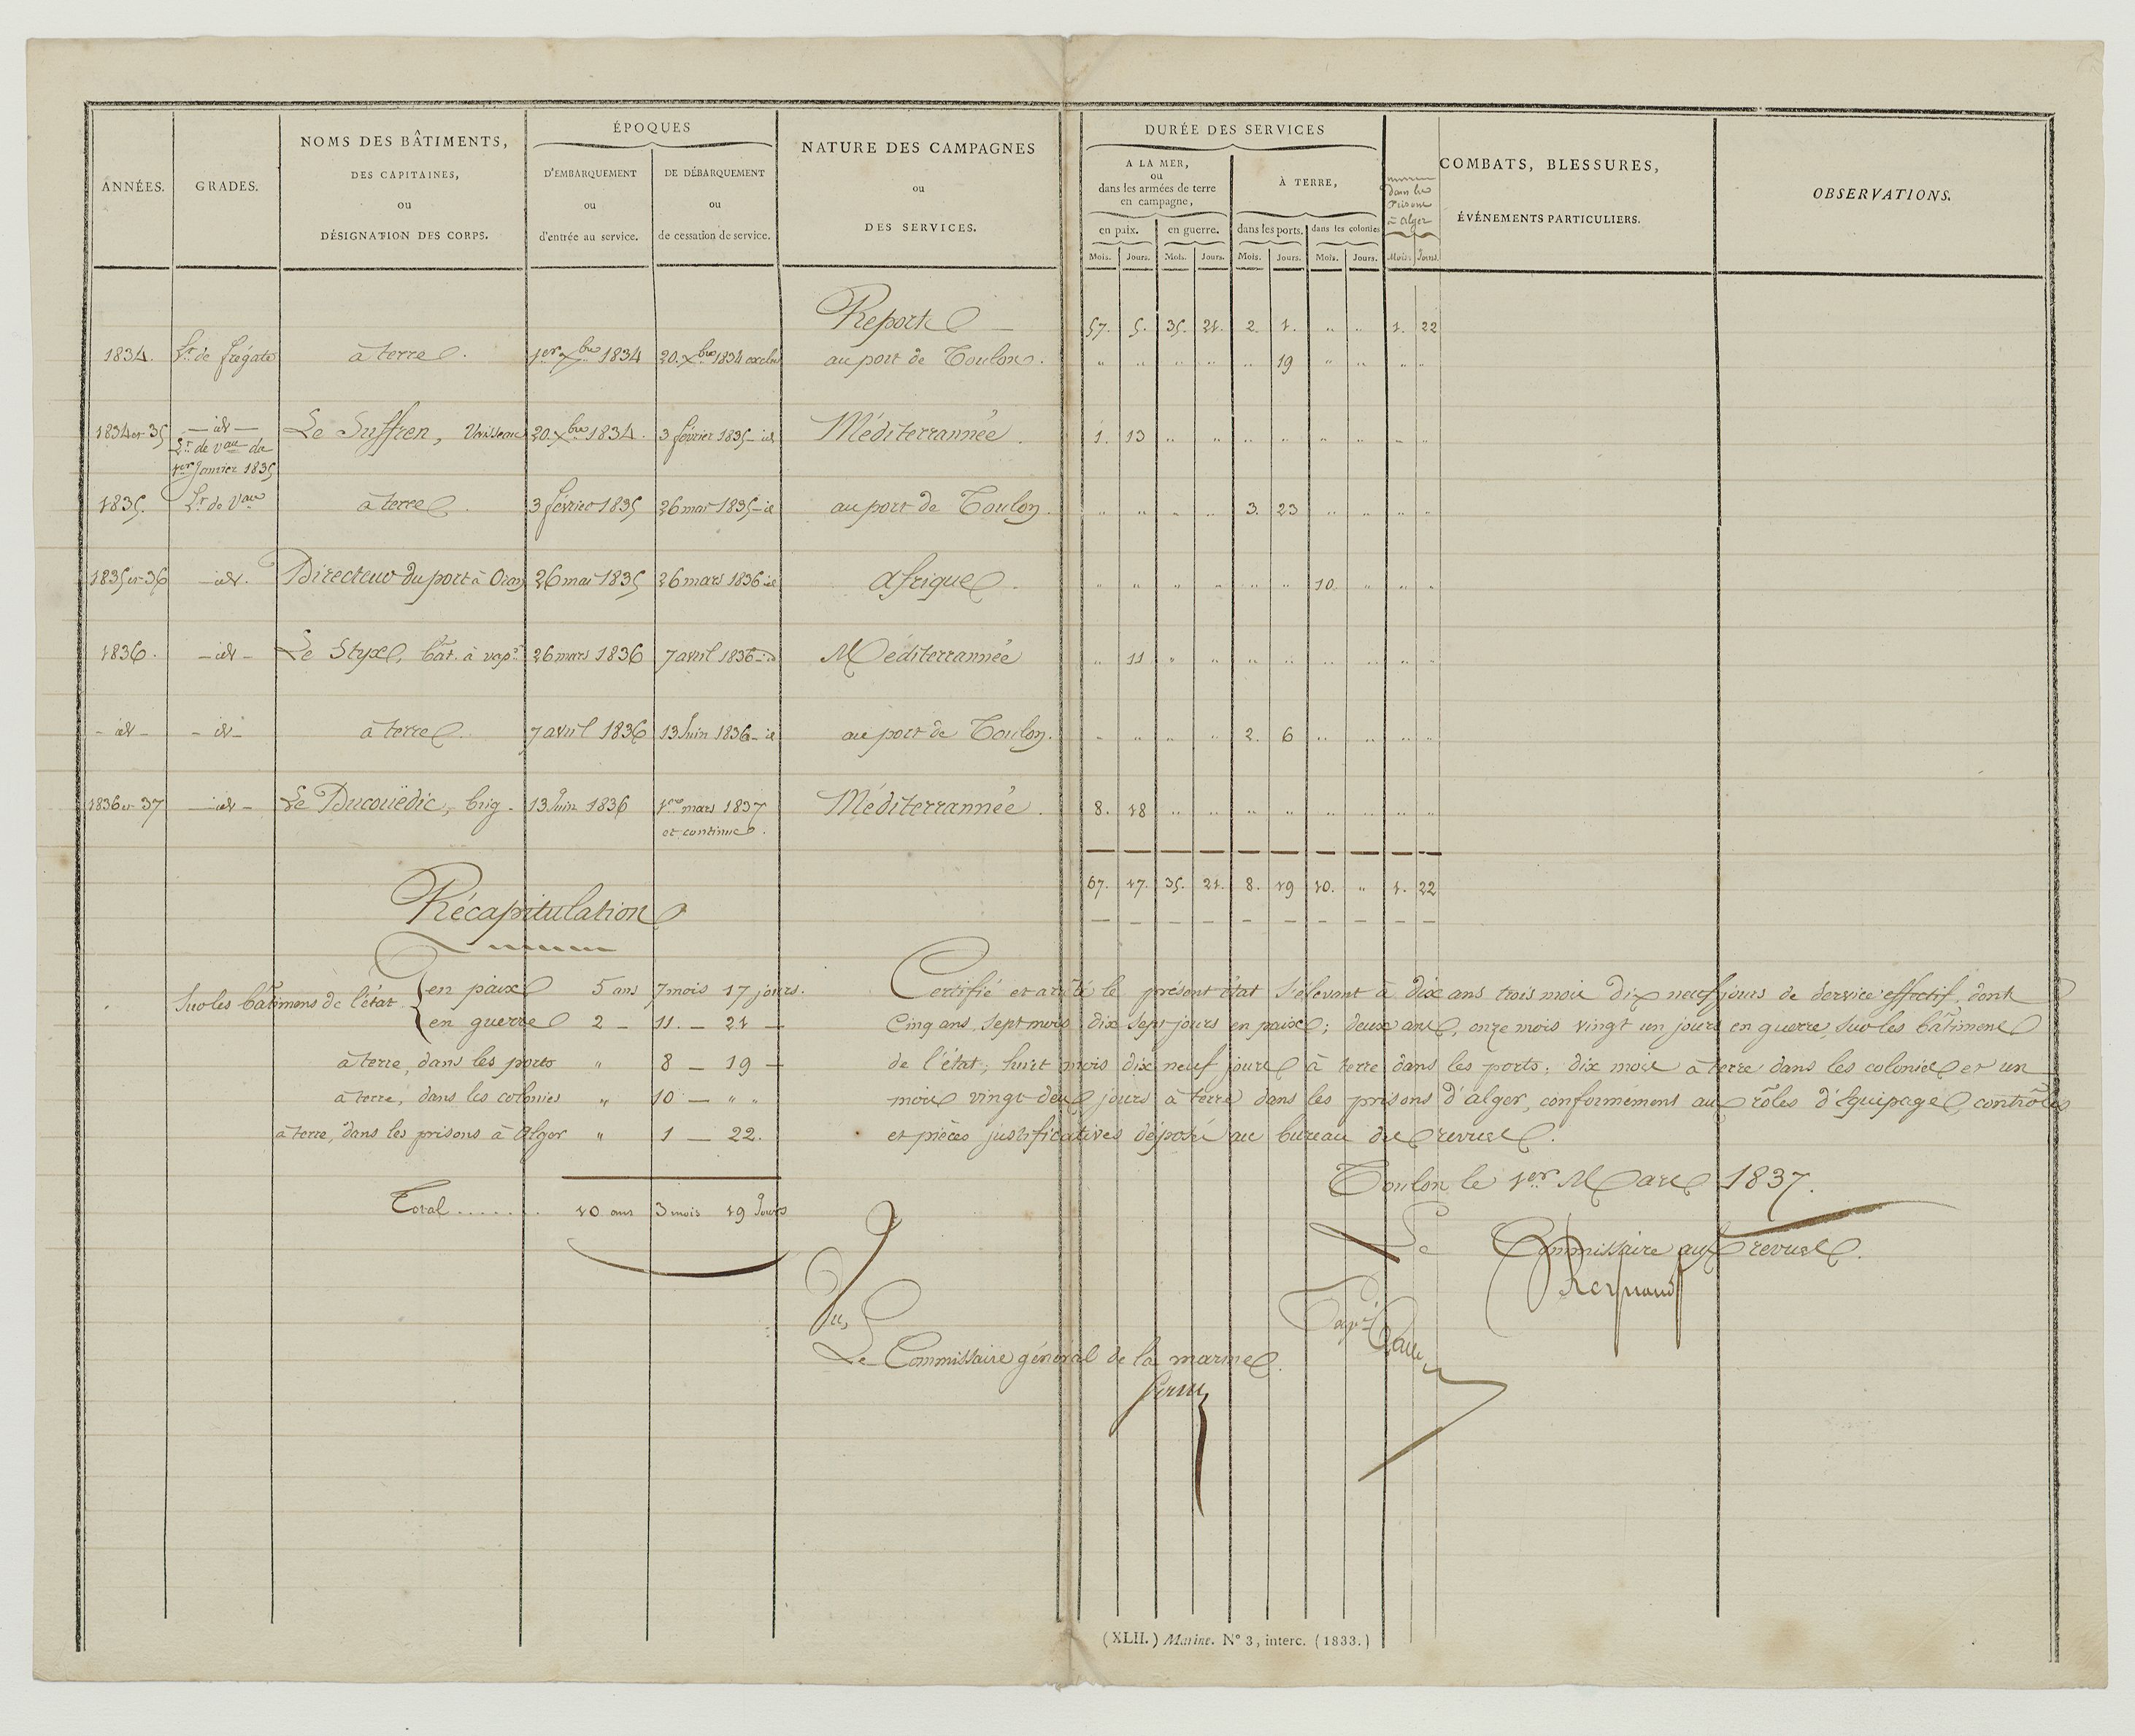 ANNÉES.
GRADES.
NOMS DES BÂTIMENTS,
DES CAPITAINES,
ou
DÉSIGNATION DES CORPS.
ÉPOQUES
D'EMBARQUEMENT
ou
d'entrée au service.
DE DÉBARQUEMENT
ou
de cessation de service.
NATURE DES CAMPAGNES
ou
DES SERVICES.
DURÉE DES SERVICES
A LA MER,
ou
dans les armées de terre
en campagne,
en paix.
en guerre.
À TERRE,
dans les ports.
dans les colonies
Mois. Jours. Mois. Jours. Mois. Jours. Mois. Jours.
dans les
Prisons
à Alger
Mois Jours
COMBATS, BLESSURES,
ÉVÉNEMENTS PARTICULIERS.
OBSERVATIONS.
Report 57. 5. 35. 21. 2. 1. " " 1. 22
1834. Lt. de frégate à terre. 1er Xbre 1834 20. Xbre 1834 exclus au port de Toulon. " " " " " 19 " " " "
1834 et 35 — id — Le Suffren, Vaisseau 20. Xbre 1834. 3 février 1835 - id Méditerrannée. 1. 13 " " " " " " " "
Lt. de Vau du
1er Janvier 1835
1835. Lt. de Vau à terre. 3 février 1835 26 mai 1835 - id au port de Toulon. " " " " 3. 23 " " " "
1835 et 36 — id. Directeur du port à Oran 26 mai 1835 26 mars 1836 id afrique. " " " " " " 10. " " "
1836. — id — Le Styx, bât. à vapr. 26 mars 1836 7 avril 1836 - id Méditerrannée " 11 " " " " " " " "
- id - - id - à terre. 7 avril 1836 13 Juin 1836 - id au port de Toulon. " " " " 2. 6 " " " "
1836 et 37 — id — Le Ducouëdic, brig. 13 Juin 1836 1er mars 1837 Méditerrannée. 8. 18 " " " " " " " "
et continue.
67. 17. 35. 21. 8. 19 10. " 1. 22
Récapitulation
Sur les bâtimens de l'état { en paix 5 ans 7 mois 17 jours.
en guerre 2 — 11. — 21 —
à terre, dans les ports " 8 — 19 —
à terre, dans les colonies " 10 — " "
à terre, dans les prisons à Alger " 1 — 22.
Total ....... 10 ans 3 mois 19 Jours
Certifié et arrêté le présent état s'élevant à dix ans trois mois dix neuf jours de service effectif, dont
Cinq ans, sept mois dix sept jours en paix; deux ans, onze mois vingt un jours en guerre, sur les bâtimens
de l'état; huit mois dix neuf jours à terre dans les ports; dix mois à terre dans les colonies et un
mois vingt-deux jours à terre dans les prisons d'alger, conformément aux rôles d'équipage, contrôles
et pièces justificatives déposés au bureau des revues.
Toulon le 1er Mars 1837.
Le Commissaire aux revues.
Reynaud
Vu,
Le Commissaire général de la marine.
(XLII.) Marine. N° 3, interc. (1833.)